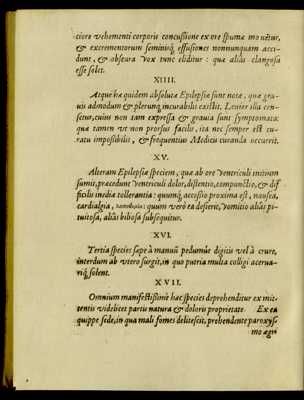 tiore vehementi corporis concussione ex ore spuma mouetur,
& excrementorum seminisq; effusiones nonnunquam acci-
dunt, & obscura vox tunc eliditur: quæ aliàs clangosa
esse solet.
XIIII.
Atque hæ quidem absolutæ Epilepsiæ sunt notæ, quæ gra-
uis admodum & plerunq; incurabilis existit. Leuior illa cen-
setur, cuius non tam expressa & grauia sunt symptomata:
quæ tamen vt non prorsus facilis, ita nec semper est cu-
ratu impossibilis, & frequentius Medicis curanda occurrit.
XV.
Alteram Epilepsiæ speciem, quæ ab ore ventriculi initium
sumit, præcedunt ventriculi dolor, distentio, compunctio, & dif
ficilis inediæ tolerantia: quumq; accessio proxima est, nausea,
cardialgia, quum verò ea desierit, vomitio aliàs pi-
tuitosa, aliàs biliosa subsequitur.
XVI.
Tertia species sæpe à manuũ pedumúe digitis vel à crure,
interdum ab vtero surgit, in quo putria multa colligi acerua-
riq; solent.
XVII.
Omnium manifestissimè hæc species deprehenditur ex mit-
tentis videlicet partis natura & doloris proprietate. Ex ea
quippe sede, in qua mali fomes delitescit, prehendente paroxys-
mo ægri